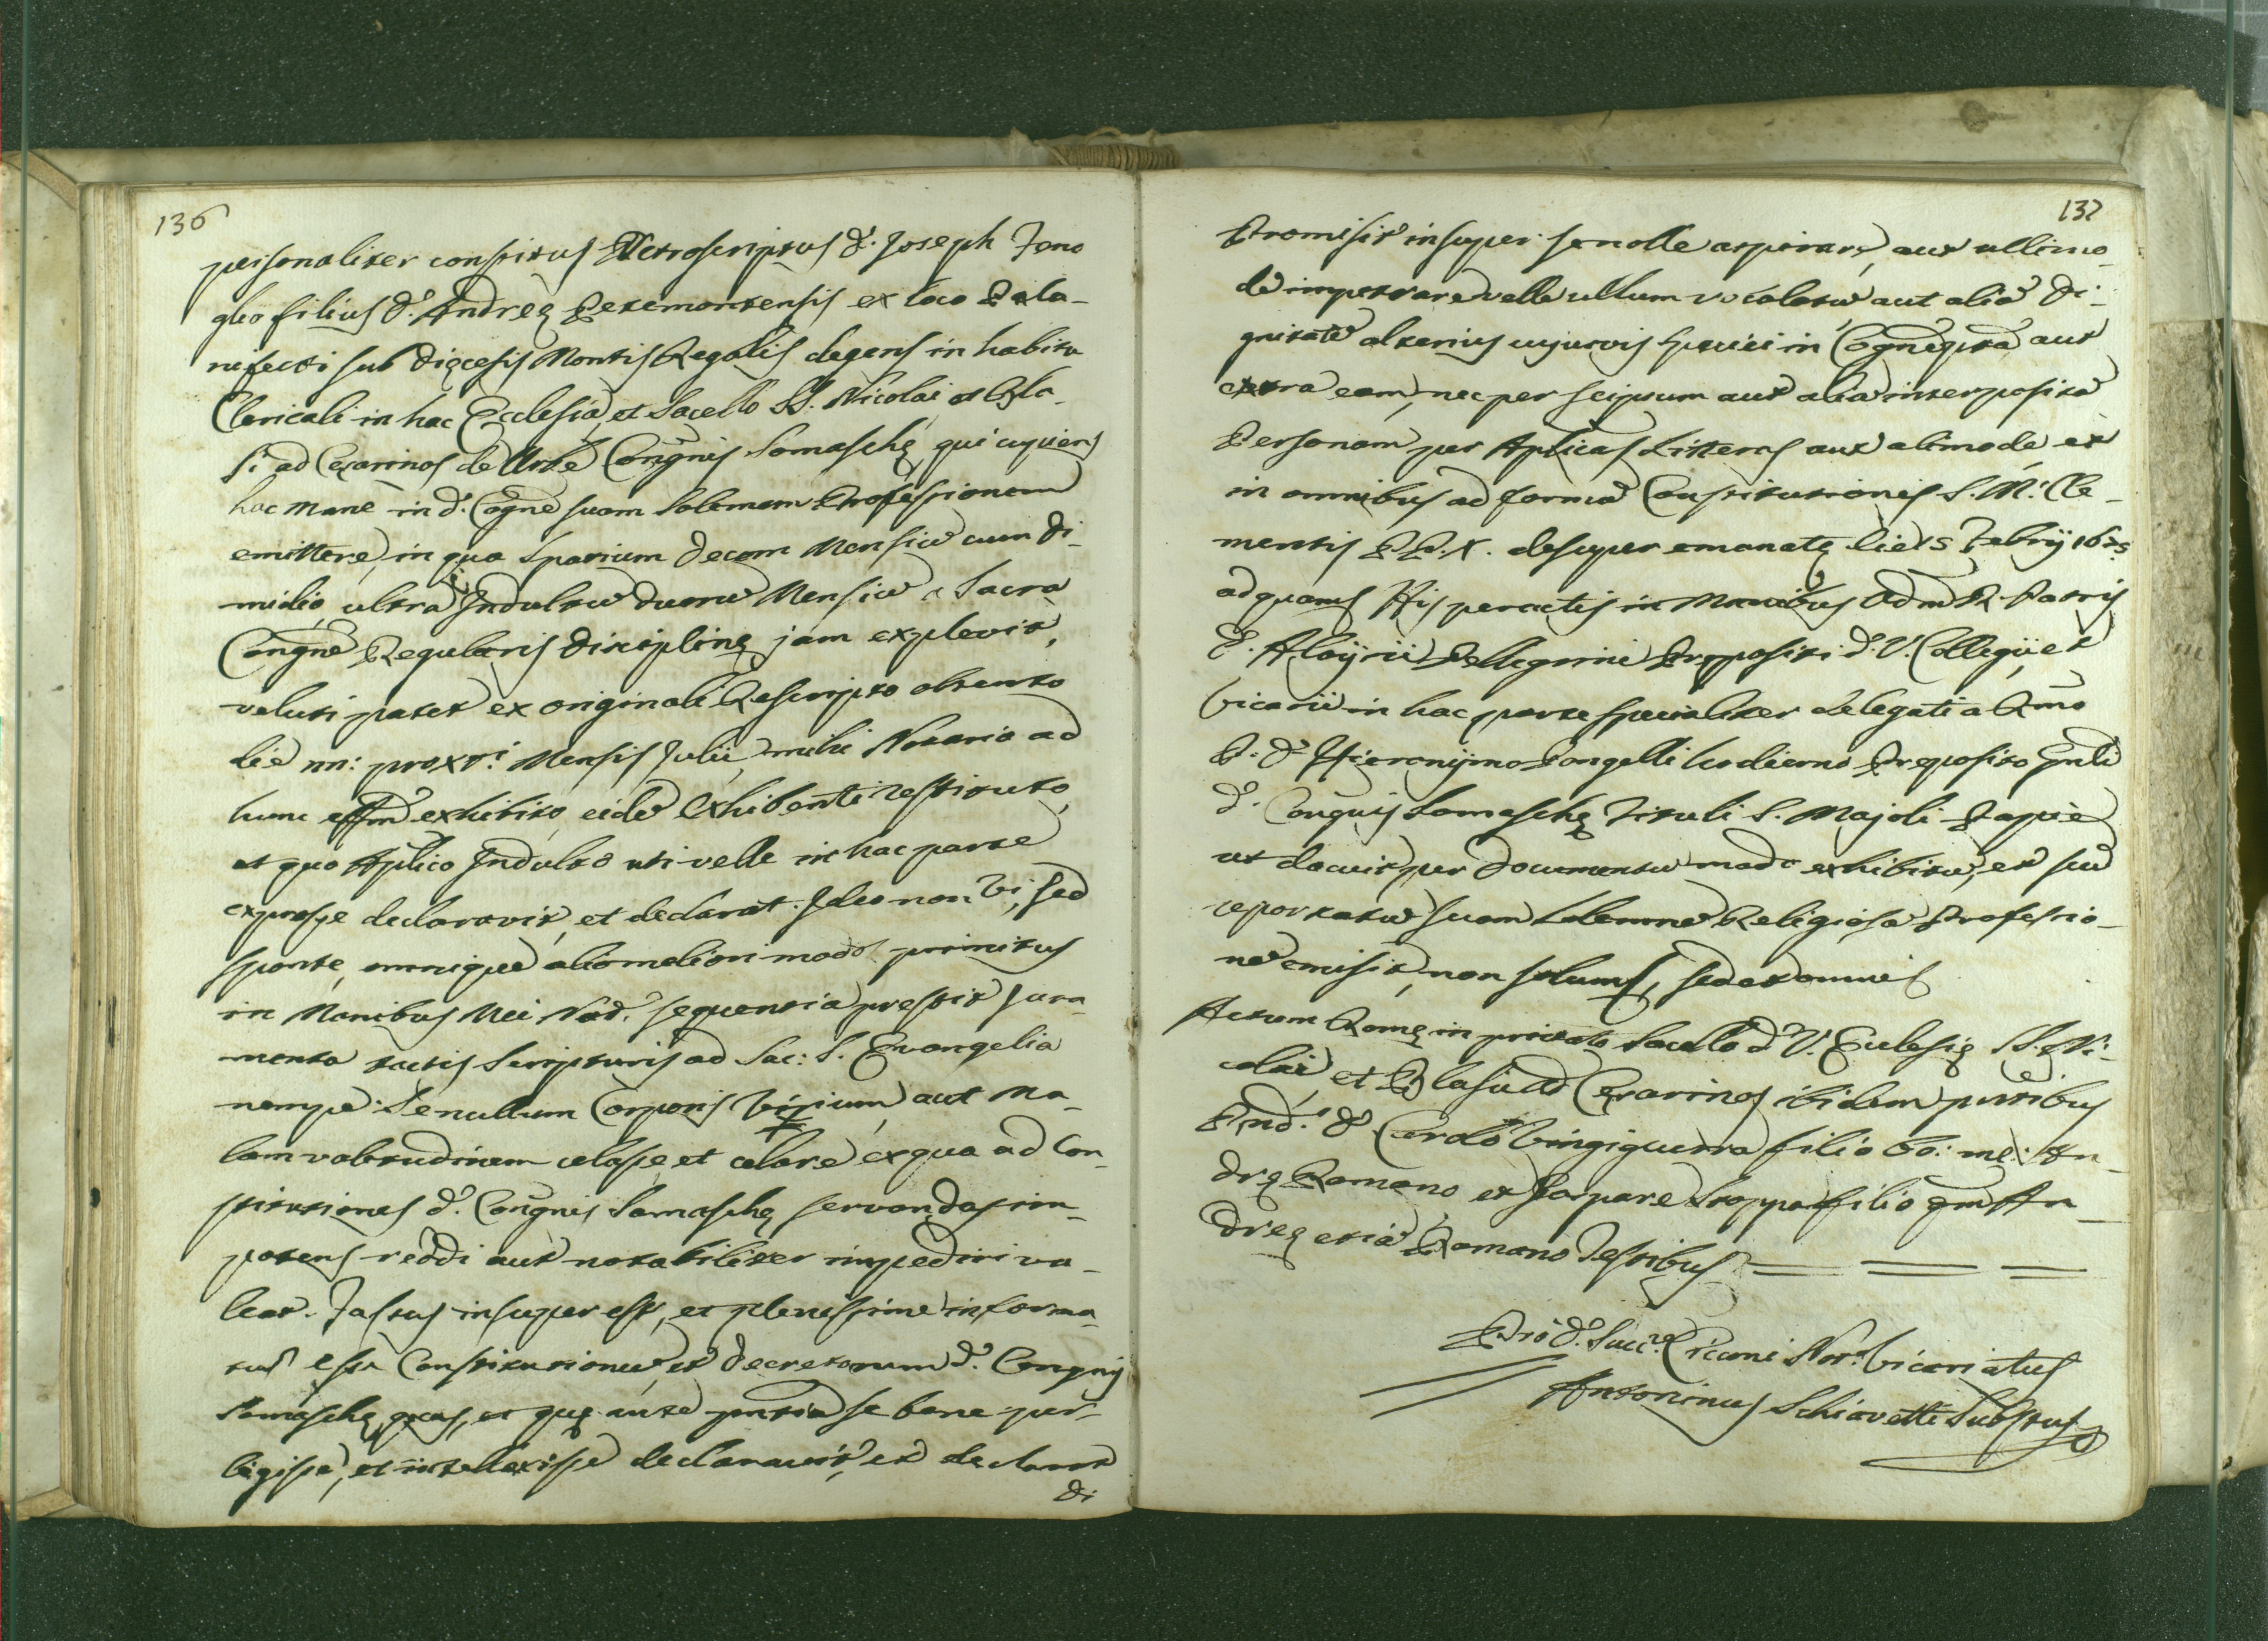 136
personaliter constitus Retroscriptus D. Joseph Feno
glio filius D. Andreę Petemontensis ex loco
nefecti sub Dięcesis Montis Regalis degens in habitu
Clericali in hac Ecclesia, et Sacello SS. Nicolai et Bla-
si ad Cęsarinos de Urbe Congnis Somaschę, qui cupiens
hac mane in d. Cogne suam Solemnem Professionem
emittere, in qua spatium decem Mensiũ cum di-
midio ultra Indultũ duorũ Mensiũ a Sacra
Congne Regularis Disciplinę jam explevit,
veluti patet ex originali Rescripto obtento
die nn: proxti Mensis Julii mihi Notario ad
hunc effm exhibito, eidẽ Exhibenti restituto,
et quo Aplico Indulto uti velle in hac parte
expresse declaravit, et declarat. Ideo non vi, sed
sponte, omnique alio meliori modo primitus
in Manibus Mei Not. sequentia prestit Jura-
menta tactis Scripturis ad Sac: S. Evangelia
nempe: Se nullum Corporis vitium, aut Ma-
lam valetudinem celasse et celare ex qua ad Con-
stitutiones d. Congnis Somaschę servandas im-
potens reddi aut notabiliter impediri va-
leat. Fassus insuper est, et plenissime informa-
tus esse Constitutionũ, et Decretorum d. Congnis
Somaschę, quas, et quę ante pntia se bene per-
legisse, et intellexisse declaravit, et declarat
di
137
Promisit insuper se nolle aspirare, aut ullimo-
de impetrare velle ullum vocalatũ aut aliã di-
gnitatẽ alterius cujusvis speciei in Cogne pta aut
extra eam, nec per seipsum aut aliã interposita
Personam per Aplicas Litteras aut alimode et
in omnibus ad formã Constitutionis S. M. Cle-
mentis PP. X. desuper emanatę Febrij 1675
ad quam His peractis in Manibus Adm R. Patris
D. Aloijsii Pellegrini Prępositi d. V. Collegii et
Vicarii in hac parte specialiter delegati a Rmo
P. D. Hieronijmo hodierno Pręposito Gnli
d. Congnis Somaschę Tituli S. Majoli Papiẽ
ut docuit per documentũ modo exhibitũ, et sui
reportatũ suam Solemnẽ Religiosã Professio-
nẽ emisit, non solum, sed et omnis
Actum Romę in privato Sacello d. V. Ecclesię SS. Ni-
colai et Blasii ad Cęsarinos ibidem pntibus
D. Carolo Vingiguerra filio bo: me: An-
dreę Romano et Gaspare Stoppa filio qm An-
dreę etiã Romano Testibus
Pro D. Succre Ciccone Not. Vicariatus
Antoninus Schiavetti Substus